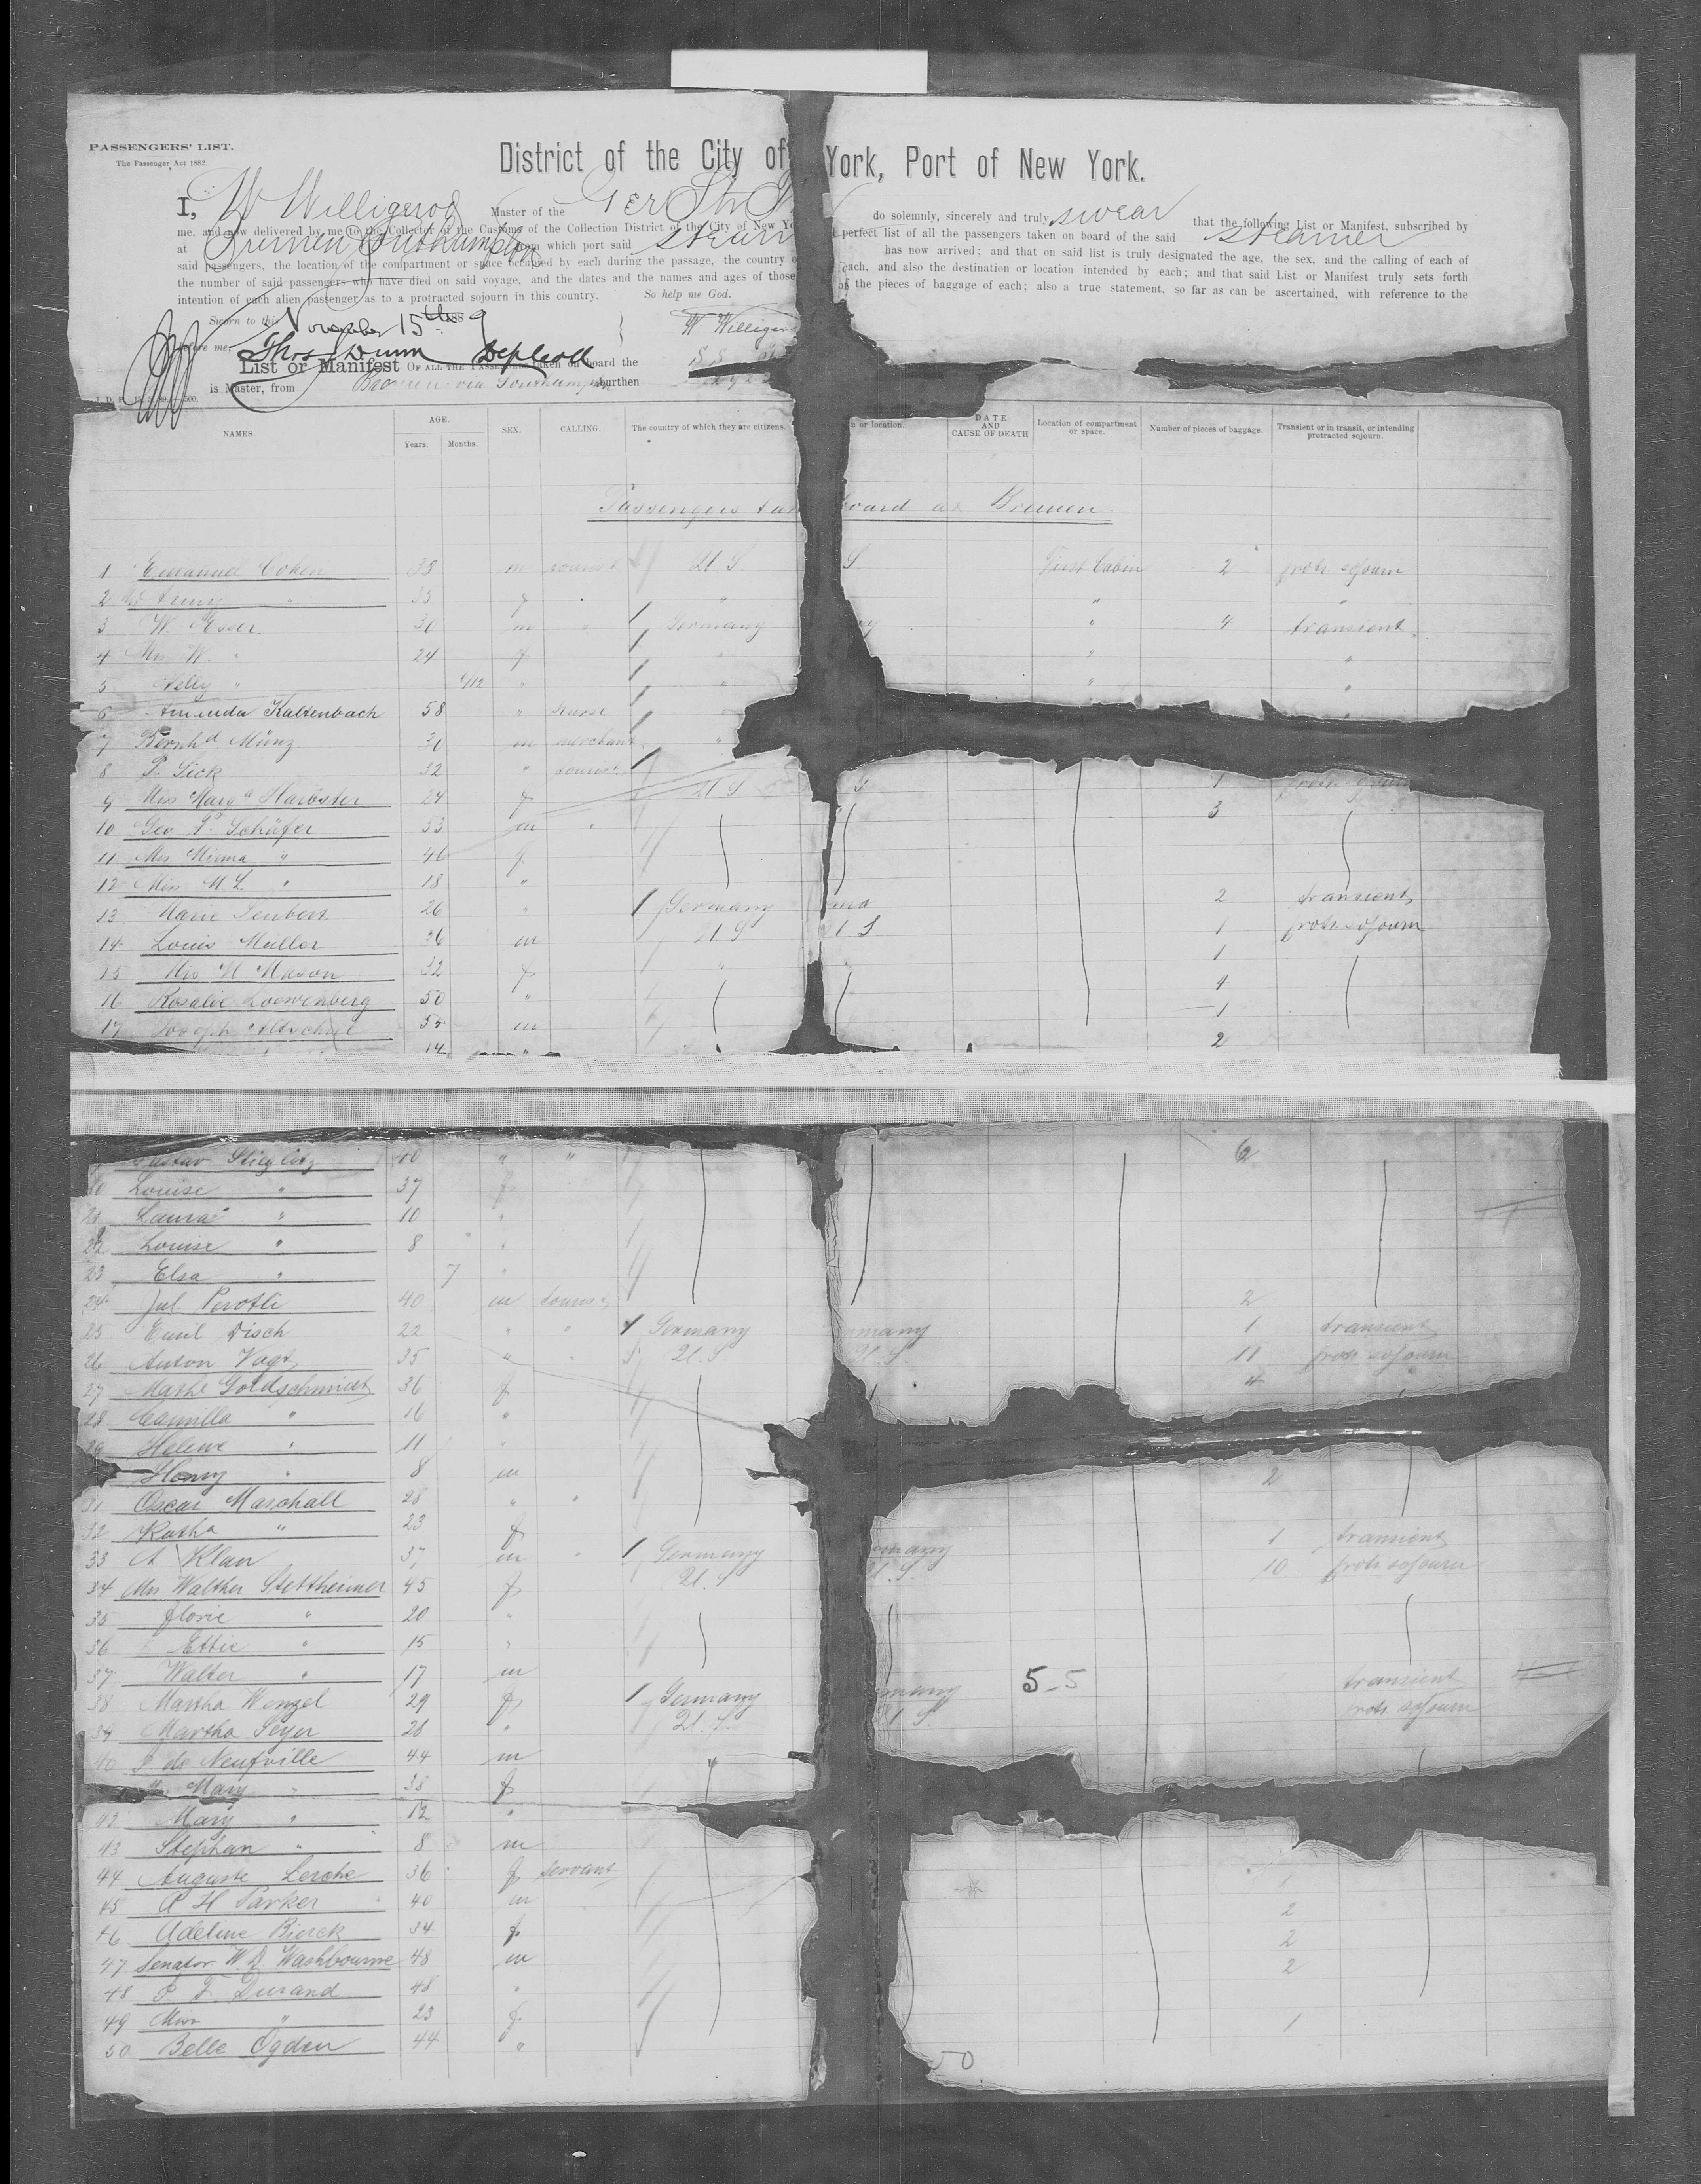 PASSENGERS' LIST.
The Passenger Act 1882.
District of the City of York, Port of New York.
I, W Willigerod Master of the Ger Str do solemnly, sincerely and truly swear that the following List or Manifest, subscribed by
me, and now delivered by me to the Collector of the Customs of the Collection District of the City of New perfect list of all the passengers taken on board of the said steamer
at Bremen Southampton from which port said steam has now arrived; and that on said list is truly designated the age, the sex, and the calling of each of
said passengers, the location of the compartment or space occupied by each during the passage, the country each, and also the destination or location intended by each; and that said List or Manifest truly sets forth
the number of said passengers who have died on said voyage, and the dates and the names and ages of those of the pieces of baggage of each; also a true statement, so far as can be ascertained, with reference to the
intention of each alien passenger as to a protracted sojourn in this country. So help me God.
Sworn to this November 15th 1889 W Willigerod
before me, Thos Dunn
List or Manifest OF ALL THE PASSENGERS taken on board the S.S.
is Master, from Bremen via Southampton burthen
NAMES. AGE. Years. Months. SEX. CALLING. The country of which they are citizens. n or location. DATE AND CAUSE OF DEATH Location of compartment or space. Number of pieces of baggage. Transient or in transit, or intending protracted sojourn.
Passengers board at Bremen.
1 Emanuel Cohen 38 m U S S First Cabin 2 protr. sojourn
2 " 35 f " " "
3 W. Esser 30 m " Germany " 4 transient
4 Mrs W. " 24 f " " "
5 Nelly " "
6 Amanda Kaltenbach 58 " nurse
7 Bernhd Münz 30 m merchant "
8 P. Sick 32 " tourist
9 Miss Marg. Harbster 24 f U S S 1
10 Geo P. Schäfer 53 m " 3
11 Mrs Minna " 46 f
12 Miss M L " 18 "
13 Marie Seubert 26 " Germany 2 transient
14 Louis Müller 36 m U S U S 1 protr. sojourn
15 Mrs M Mason 32 f " 1
16 Rosalie Loewenberg 50 " 4
17 Joseph Altschul 54 m 1
14 " 2
Gustav Stieglitz 40 " " 6
Louise " 37 f
21 Laura " 10 "
22 Louise " 8 "
23 Elsa " 7 "
24 Jul Perotti 40 m tourist 2
25 Emil Disch 22 " " Germany many 1 transient
26 Anton Vogt 35 " " U. S. U. S. 11 protr. sojourn
27 Mathe Goldschmidt 36 f 4 "
28 Camilla " 16 "
29 Helene " 11 "
Henry " 8 m 2
31 Oscar Marschall 28 " "
32 Katha " 23 f
33 A Klau 37 m " Germany many 1 transient
34 Mrs Walther Stettheimer 45 f U. S. S. 10 protr. sojourn
35 Florie " 20 "
36 Ettie " 15 "
37 Walter " 17 m
38 Martha Wenzel 29 f Germany many 5-5 transient
39 Martha Seyer 28 " U. S. S. protr. sojourn
40 de Neufville 44 m "
Mary " 38 f
42 Mary " 12 "
43 Stephan " 8 m
44 Auguste Lerche 36 f servant 1
45 A H Parker 40 m 2
46 Adeline Bierck 34 f 2
47 Senator W. D. Washbourne 48 m 2
48 F. Durand 48 "
49 Miss " 23 f 1
50 Belle Ogden 44 "
50